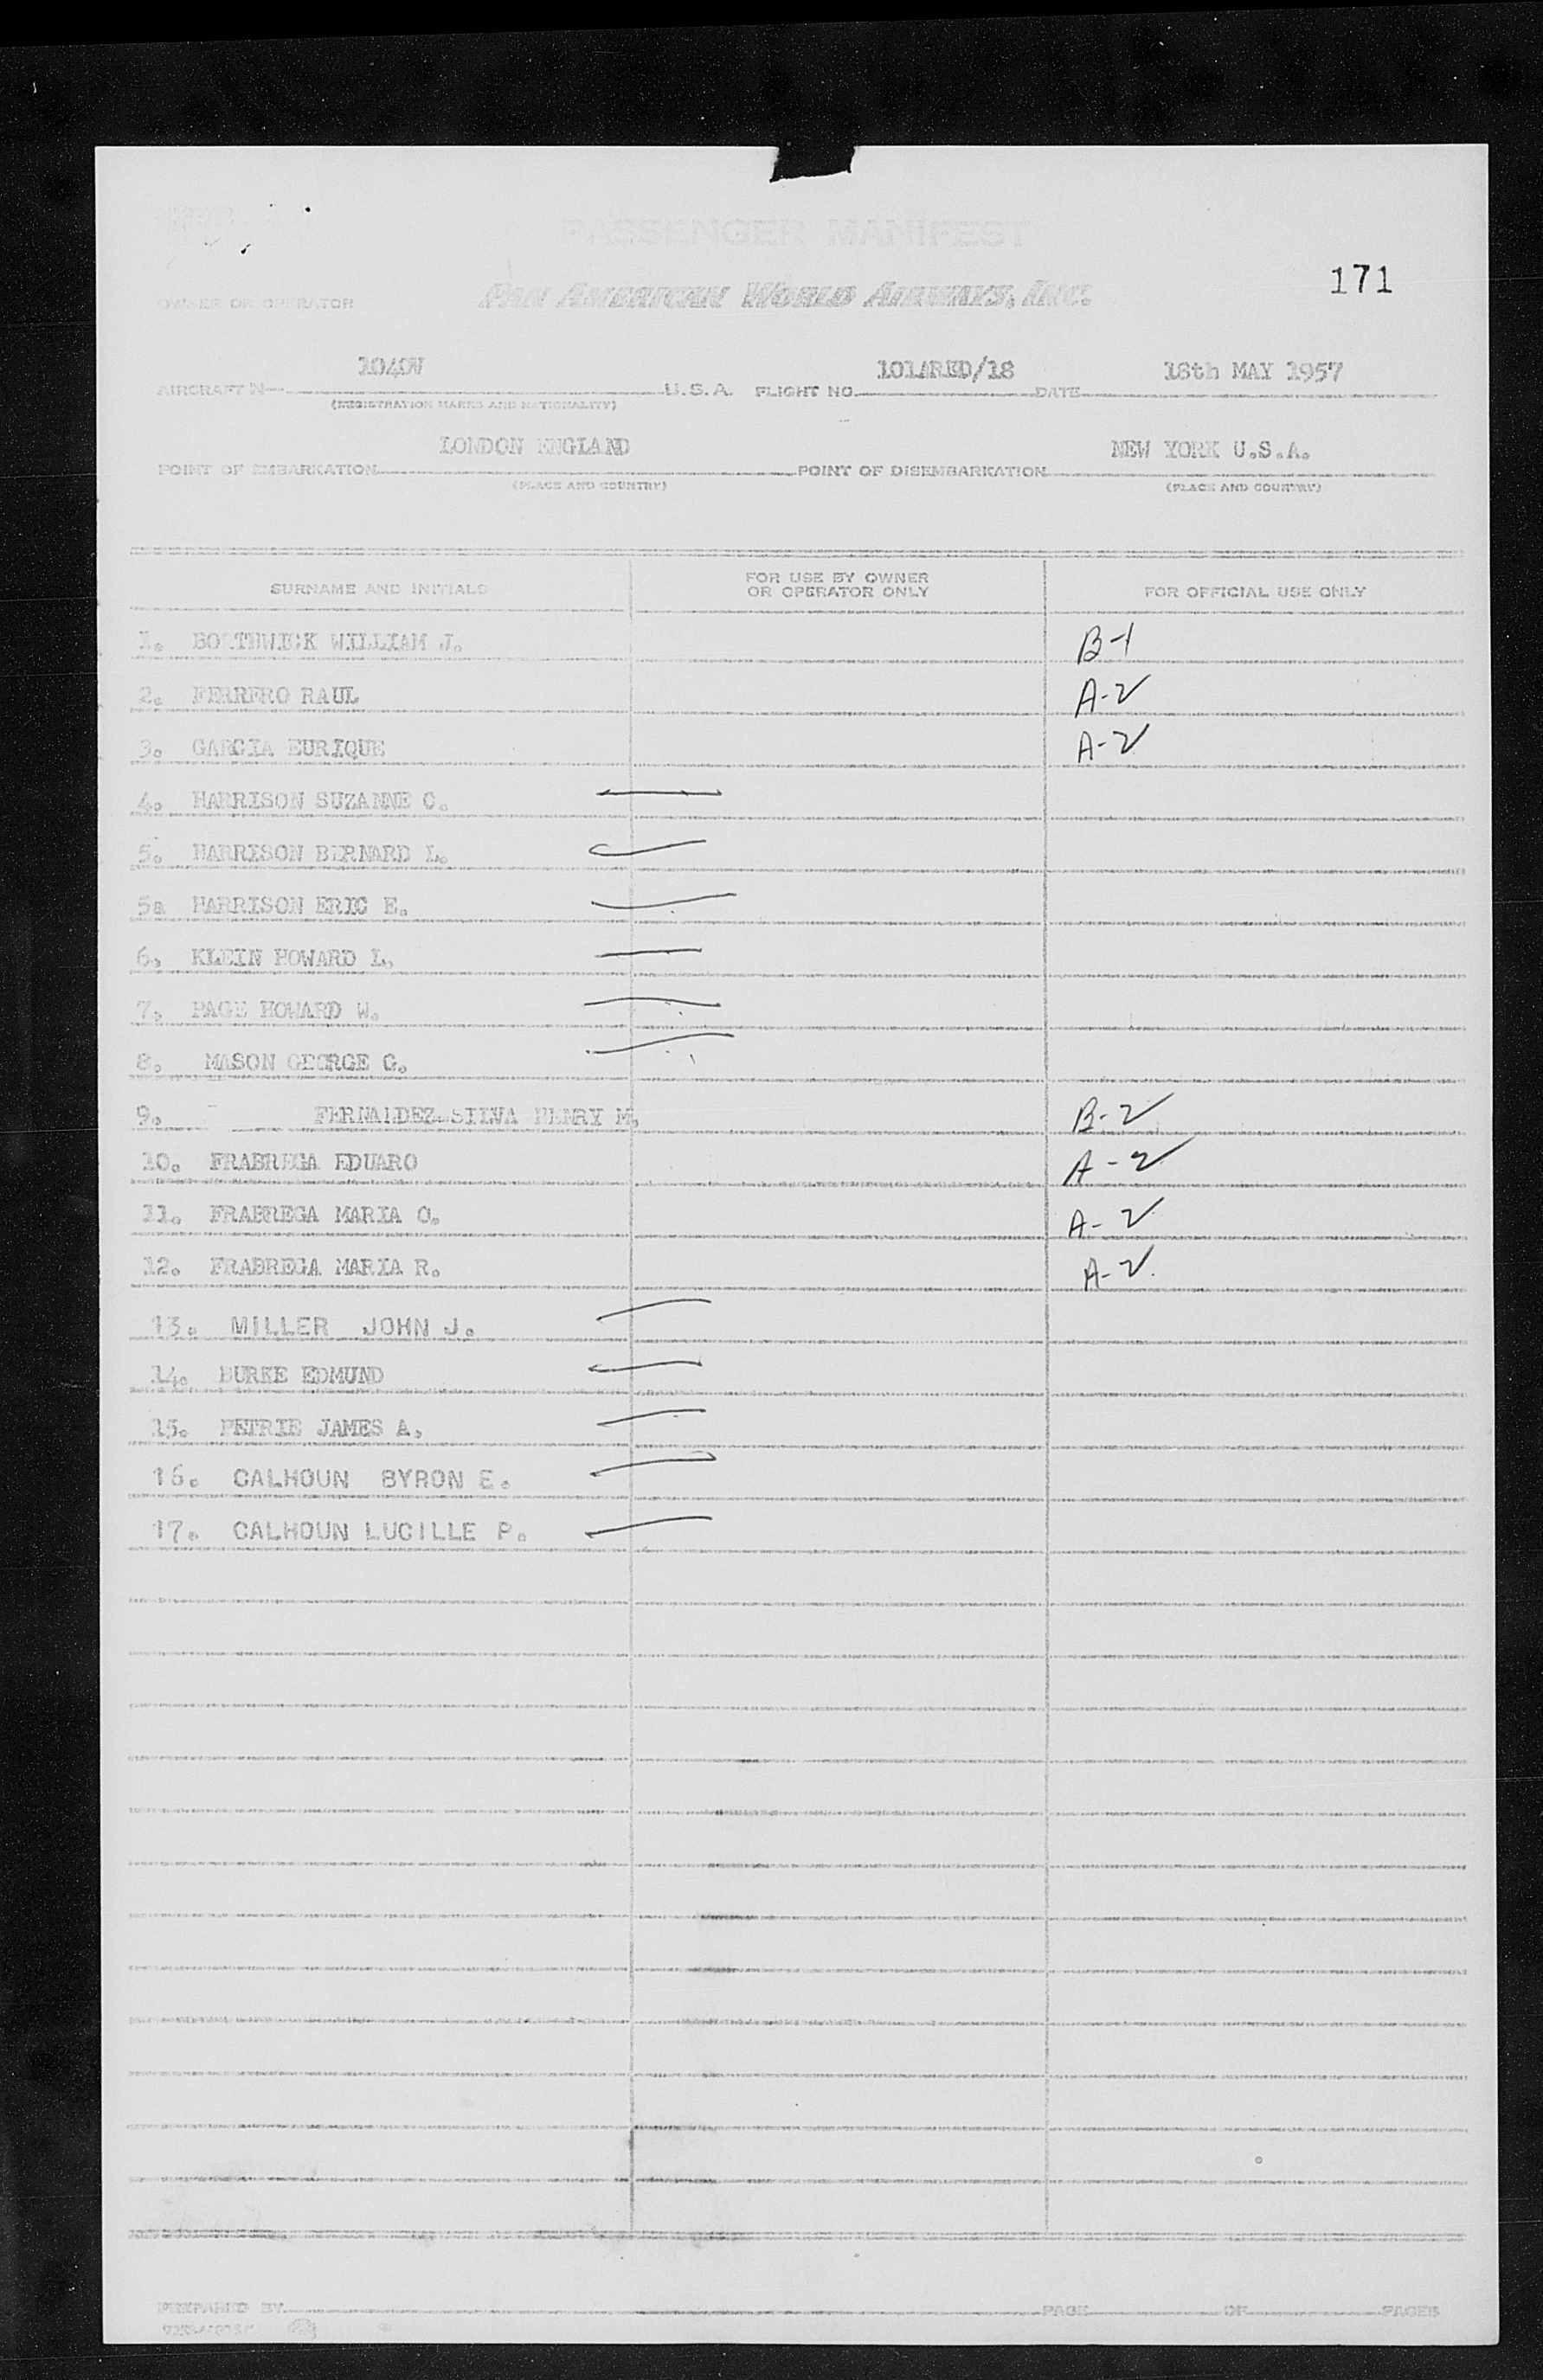 PASSENGER MANIFEST
171
OWNER OR OPERATOR PAN AMERICAN WORLD AIRWAYS, INC.
1040V 101/RED/18 18th MAY 1957
AIRCRAFT N— U.S.A. FLIGHT NO. DATE
(REGISTRATION MARKS AND NATIONALITY)
LONDON ENGLAND NEW YORK U.S.A.
POINT OF EMBARKATION POINT OF DISEMBARKATION
(PLACE AND COUNTRY) (PLACE AND COUNTRY)
SURNAME AND INITIALS FOR USE BY OWNER OR OPERATOR ONLY FOR OFFICIAL USE ONLY
1. WILLIAM J. B-1
2. FERRERO RAUL A-2
3. GARCIA EURIQUE A-2
4. HARRISON SUZANNE C.
5. HARRISON BERNARD L.
5a HARRISON ERIC E.
6. KLEIN HOWARD L.
7. PAGE HOWARD W.
8. MASON GEORGE G.
9. FERNALDEZ-SILVA HENRY M. B-2
10. FRABREGA EDUARO A-2
11. FRABREGA MARIA O. A-2
12. FRABREGA MARIA R. A-2
13. MILLER JOHN J.
14. BURKE EDMUND
15. PETRIE JAMES A.
16. CALHOUN BYRON E.
17. CALHOUN LUCILLE P.
PREPARED BY PAGE OF PAGES